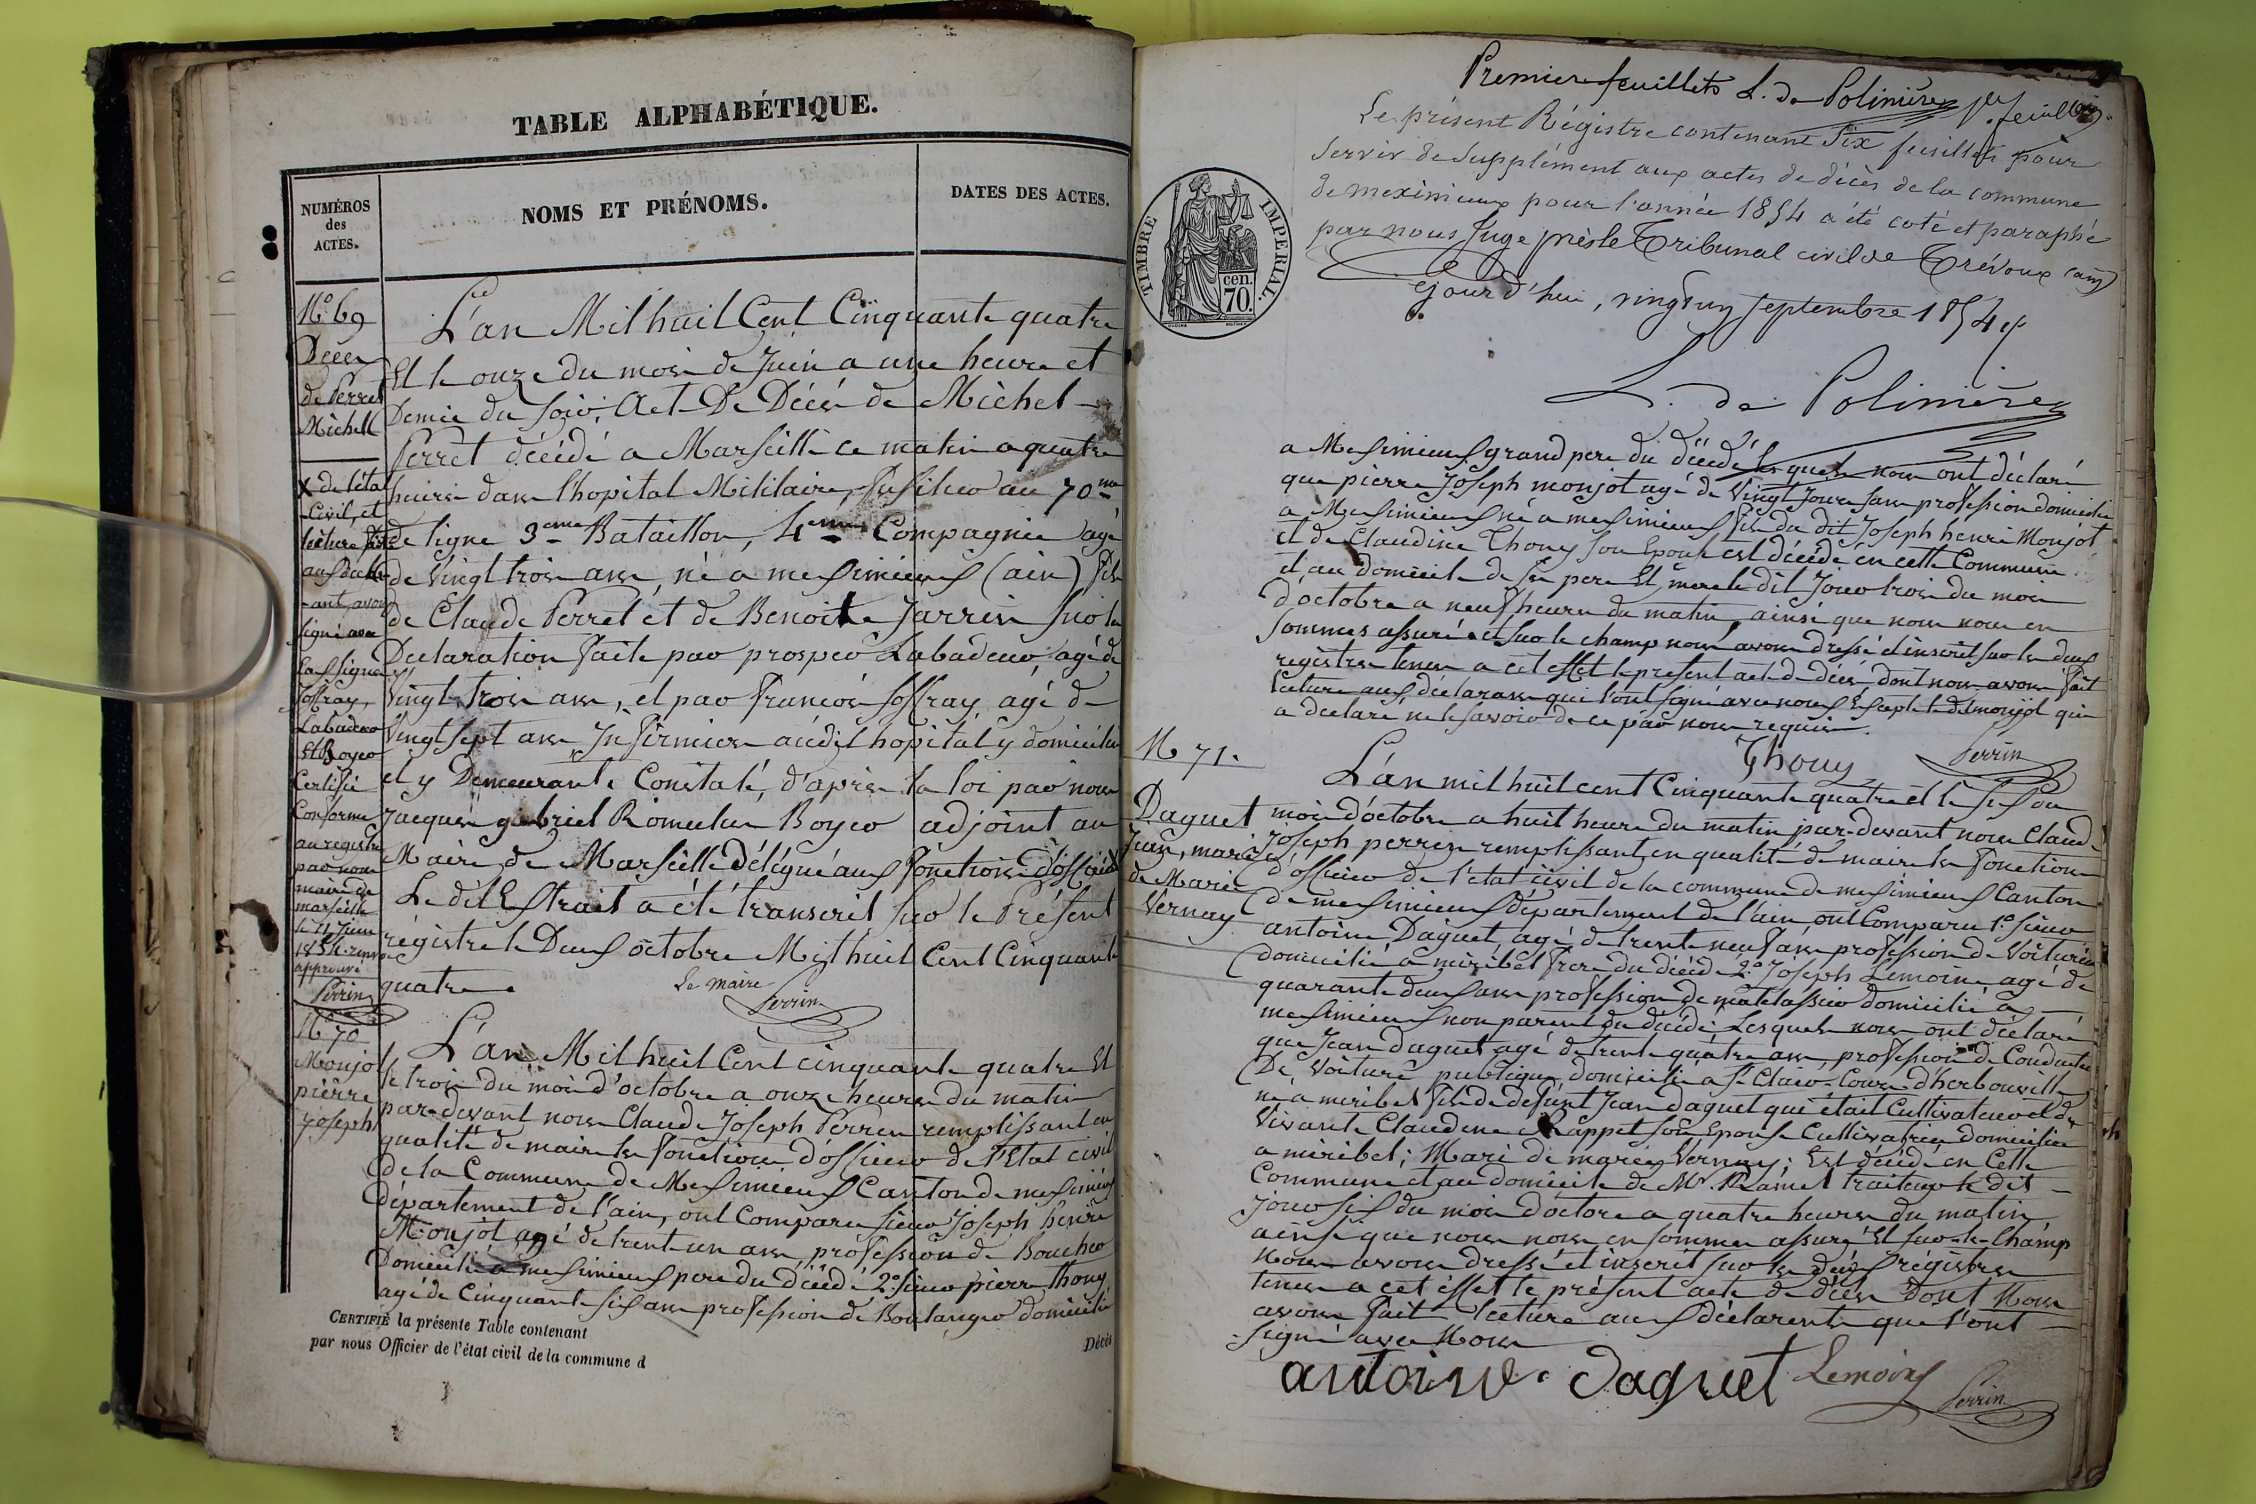 TABLE ALPHABÉTIQUE.
NUMÉROS
des
ACTES.
NOMS ET PRÉNOMS.
DATES DES ACTES.
N° 69
Décès
de Perret
Michell
L'an Mil huit Cent Cinquante quatre
Et le onze du mois de Juin a une heure et
Demie du Soir, Acte De Décès de Michel
Perret décédé a Marseille ce matin a quatre
heures dans l'hopital Militaire, fusilier au 70me
de ligne 3eme Bataillon, 4eme Compagnie agé
de Vingt trois ans, né a meximieux (ain) fils
de Claude Perret et de Benoite Jarrin sur la
Declaration faite par prosper Labadeur, agé de
Vingt trois ans, et par francois Joffray agé de
Vingt sept ans Infirmiers audit hopital y domiciliés
et y Demeurants Constaté, d'après la loi par nous
Jacques gabriel Romulus Boyer adjoint au
Maire de Marseille délégué aux fonctions d'officier
x de l'état
Civil, et
lecture faite
aux déclar
-ant, avons
signé avec
Joffray,
Labadeur
Et Boyer
Certifié
Conforme
au registre
par nous
maire de
marseille
le 11 Juin
1854. renvoi
approuvé
Perrin
Le dit Extrait a été transcrit sur le Présent
régistre le Deux octobre Mil huit Cent Cinquante
quatre.
Le maire
Perrin
N° 70
Monjot
pierre
Joseph
L'an Mil huit Cent cinquante quatre Et
le trois du mois d'octobre a onze heures du matin
par-devant nous Claude Joseph Perrin remplissant en
qualité de maire les fonctions d'officier de l'Etat civil
de la Commune de Meximieux Canton de meximieux
département de l'ain, ont Comparu sieur Joseph henri
Monjot agé de trente un ans, profession de Boucher
Domicilié a meximieux pere du décédé 2° sieur pierre Thouy
agé de Cinquante six ans profession de Boulanger domicilié
CERTIFIÉ la présente Table contenant
par nous Officier de l'état civil de la commune d
Décès
Premier feuillets L. de Polinière 1er feuillet
Le présent Régistre contenant Six feuillets pour
servir de Supplément aux actes de décès de la commune
de meximieux pour l'année 1854 a été coté et paraphé
par nous Juge près le Tribunal civil de Trévoux (ain)
ce jour d'hui, vingt un Septembre 1854
TIMBRE IMPERIAL.
cen.
70.
L. de Polinière
a Meximieux grand pere du décédé lesquels nous ont déclaré
que pierre Joseph monjot agé de Vingt Jours sans profession domicilié
a Meximieux né a meximieux fils du dit Joseph henri Monjot
et de Claudine Thouy son Epouse est décédé en cette Commune
et au domicile de ses pere Et mere le dit Jour trois du mois
d'octobre a neuf heures du matin, ainsi que nous nous en
sommes assuré et sur le champ nous avons dressé et inscrit sur les deux
registres tenus a cet effet le présent acte de décès dont nous avons fait
lecture aux déclarans qui l'ont signé avec nous Excepté le dit monjot qui
a declaré ne le savoir de ce par nous requis.
Thouy
Perrin
N 71.
Daguet
Jean, mari
de Marie
Vernay
L'an mil huit cent Cinquante quatre et le six du
mois d'octobre a huit heures du matin par-devant nous Claude
Joseph perrin remplissant en qualité de maire les fonctions
d'officier de l'état civil de la commune de meximieux Canton
de meximieux département de l'ain, ont Comparu 1° sieur
antoine Daguet, agé de trente neuf ans profession de Voiturier
domicilié a miribel frere du décédé 2° Joseph Lemoine agé de
quarante deux ans profession de matelassier domicilié a
meximieux non parent du décédé Lesquels nous ont déclaré
que Jean daguet agé de trente quatre ans, profession de Conducteur
De Voiture publique domicilié a St. Clair-Cours d'herbouville
né a miribel fils de defunt Jean daguet qui était Cultivateur et de
Vivante Claudine Rappet son Epouse Cultivatrice domiciliée
a miribel; Mari de marie Vernay; Est décédé en Cette
Commune et au domicile de Mr. Ramel traiteur le dit
Jour six du mois d'octore a quatre heures du matin
ainsi que nous nous en sommes assuré Et sur-le-Champ
Nous avons dressé et inscrit sur les deux régistres
tenus a cet éffet le présent acte de décès dont Nous
avons fait lecture aux déclarents que l'ont
signé avec Nous
antoine daguet
Lemoine
Perrin